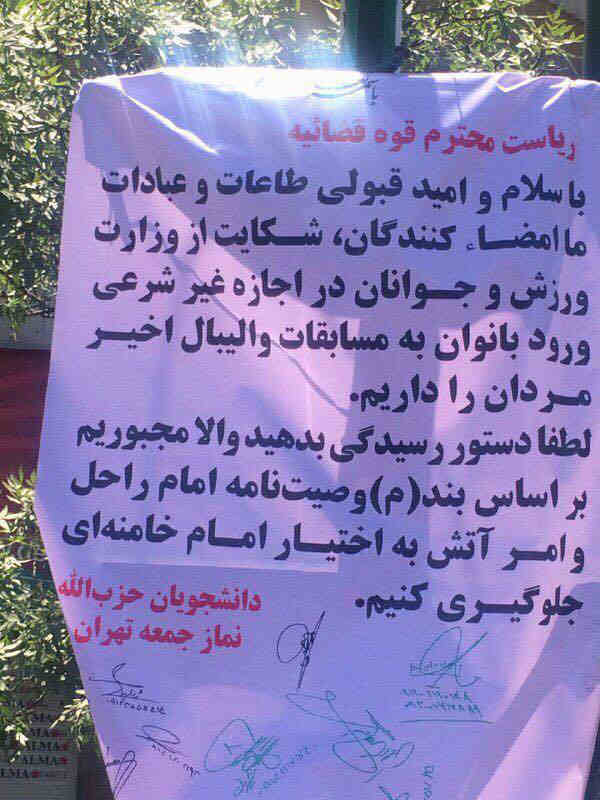 ریاست محترم قوه قضائیه
با سلام و امید قبولی طاعات و عبادات
ما امضاء کنندگان، شکایت از وزارت
ورزش و جوانان در اجازه غیر شرعی
ورود بانوان به مسابقات والیبال اخیر
مردان را داریم.
لطفا دستور رسیدگی بدهید والا مجبوریم
بر اساس بند(م) وصیت‌نامه امام راحل
و امر آتش به اختیار امام خامنه‌ای
جلوگیری کنیم.
دانشجویان حزب‌الله
نماز جمعه تهران
ALMA
ALMA
ALMA